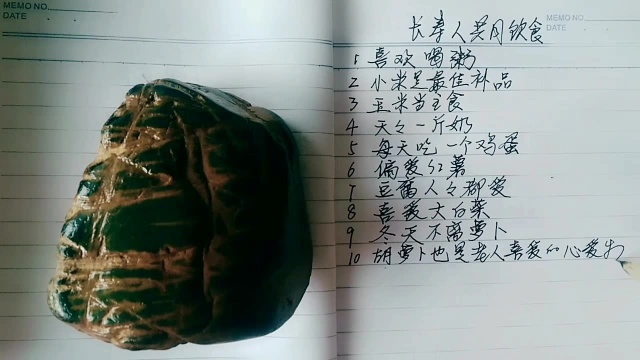 MEMO NO.
DATE
MEMO NO.
DATE
长寿人共同饮食
1 喜欢喝粥
2 小米是最佳补品
3 玉米当主食
4 天天一斤奶
5 每天吃一个鸡蛋
6 偏爱红薯
7 豆腐人人都爱
8 喜爱大白菜
9 冬天不离萝卜
10 胡萝卜也是老人喜爱的心爱物